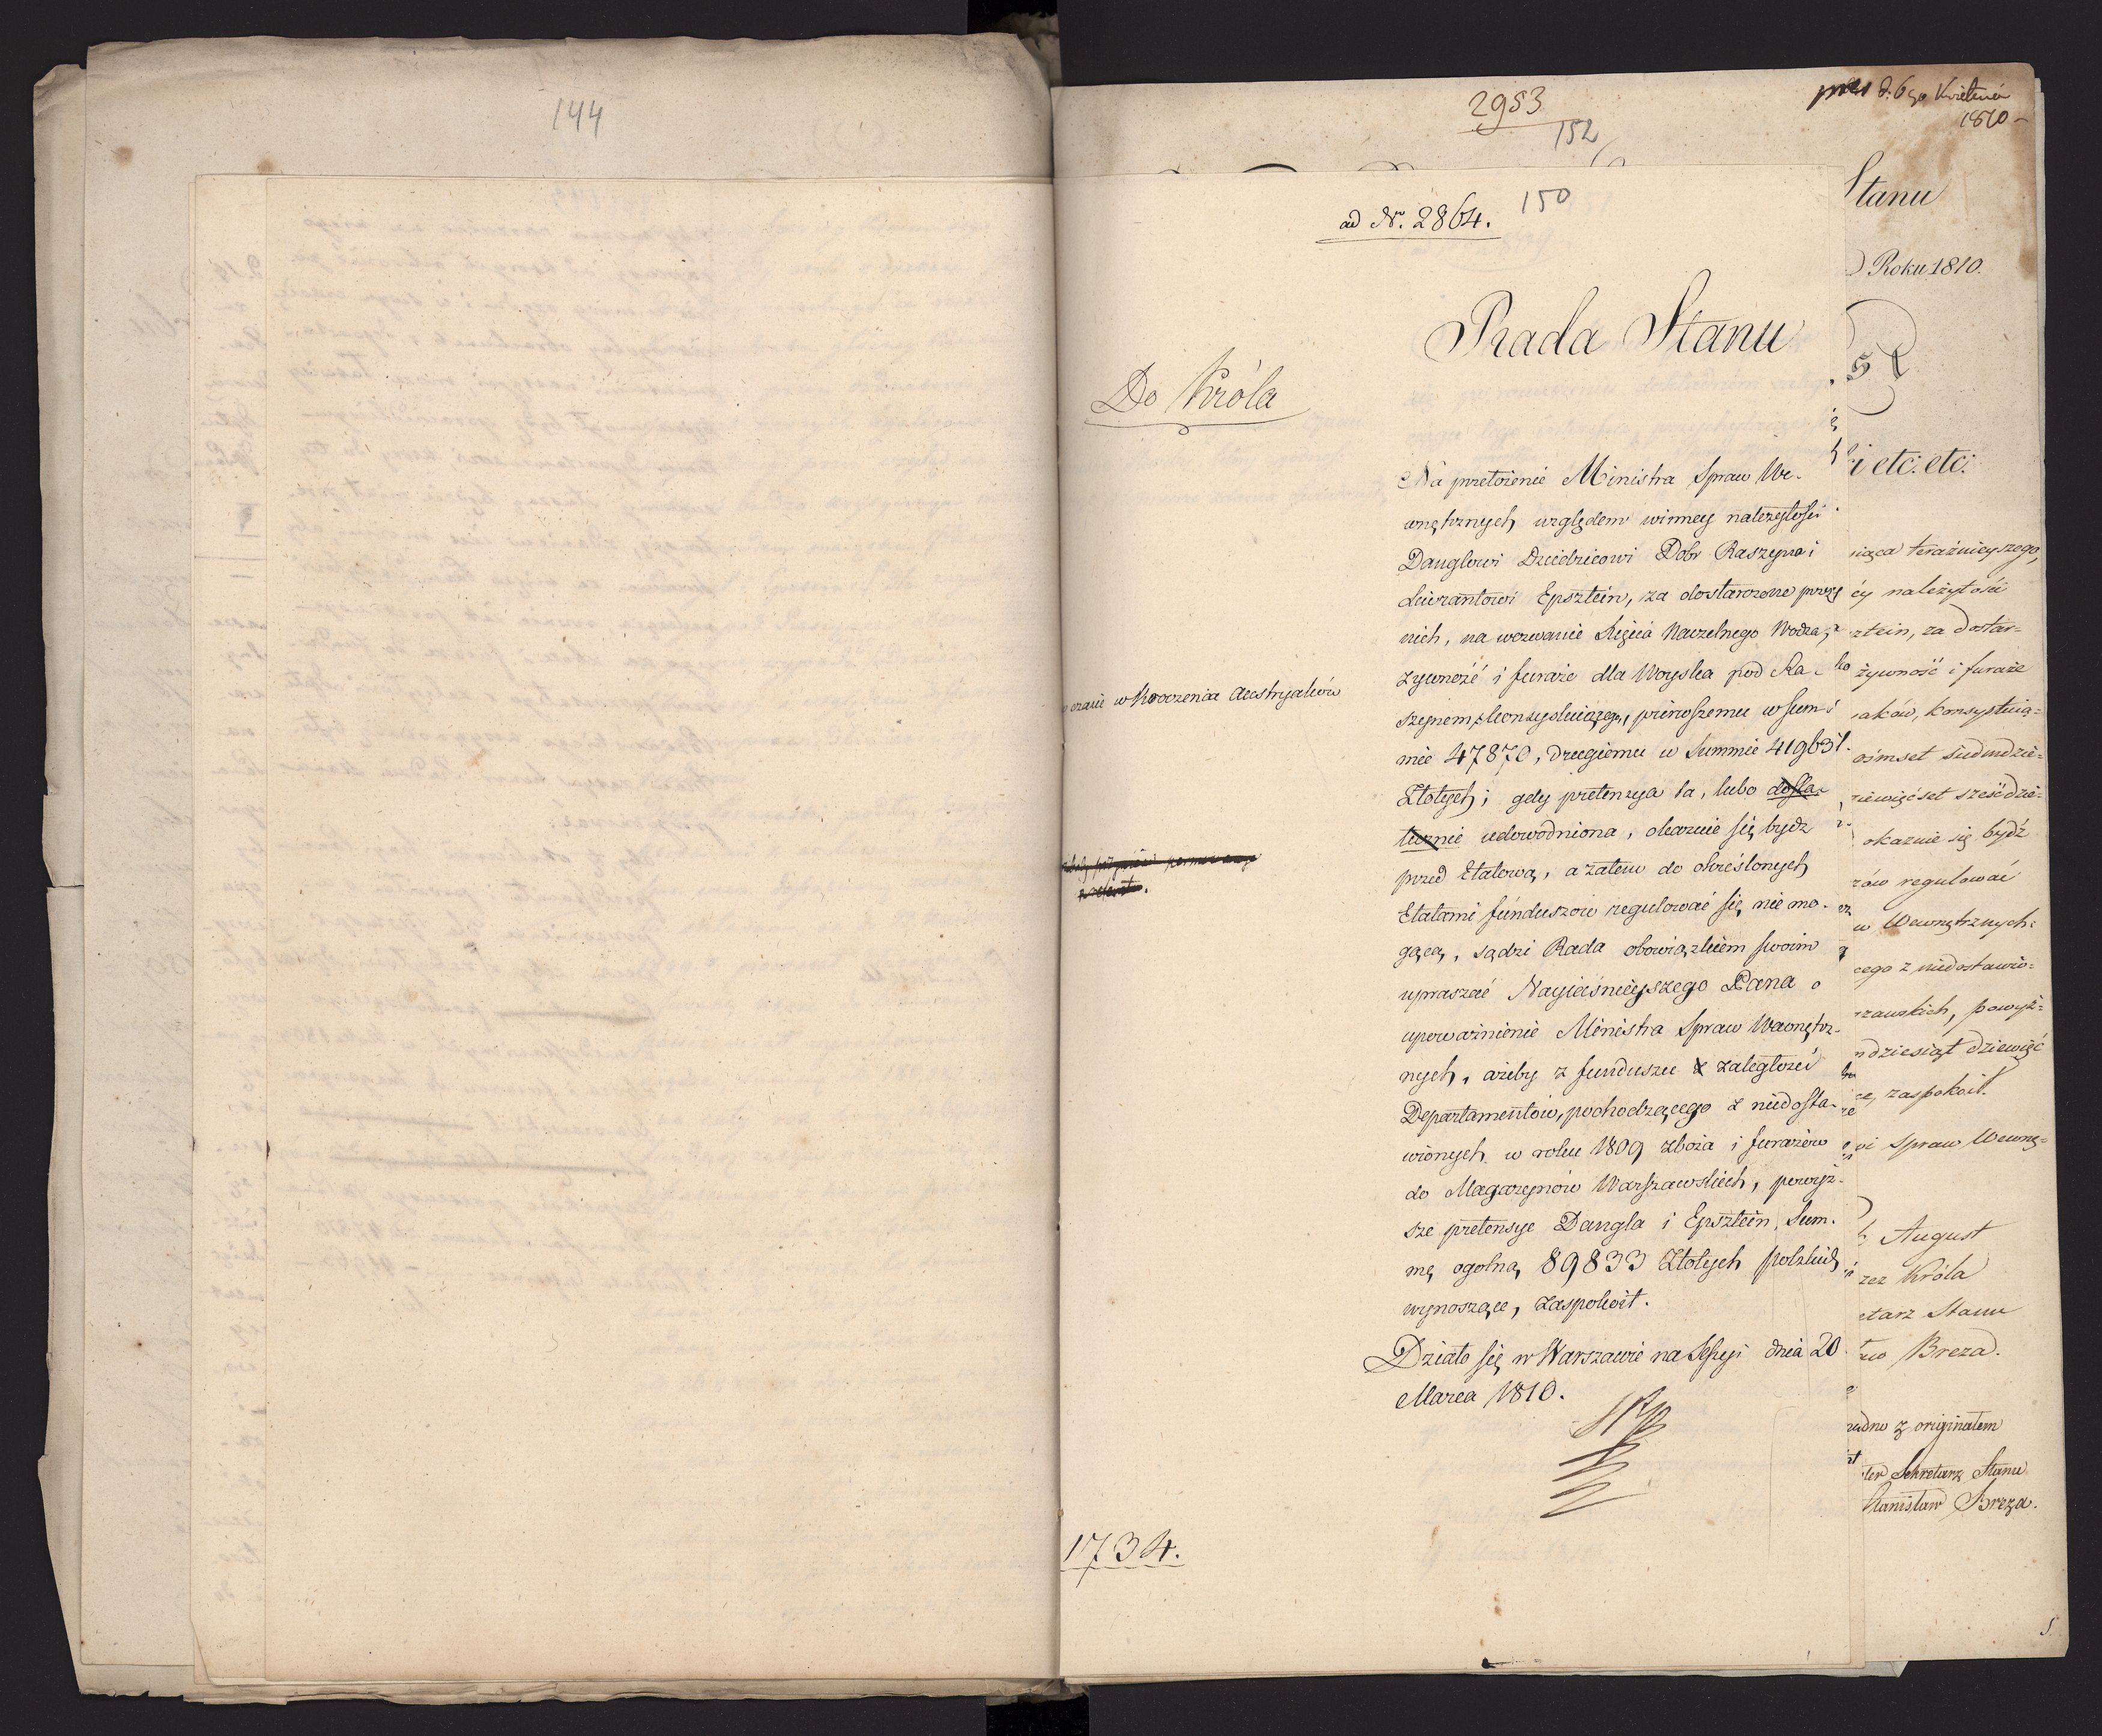 144
2953
152
pres d. 6go Kwietnia
1810
Stanu
Roku 1810.
i etc: etc:
ad Nr. 2864.
150
Rada Stanu
Do Króla
Na przełożenie Ministra Spraw We-
wnętrznych względem winney należytości
Danglowi Dziedzicowi Dobr Raszyna i
Liwerantowi Epsztein, za dostarczone przez
nich, na wezwanie Xięcia Naczelnego Wodza,
żywność i furaże dla Woyska pod Ra-
w czasie wkroczenia Austryaków
szynem konsystuiącego, pierwszemu w Sum-
mie 47870, drugiemu w Summie 41963
Złotych; gdy pretensya ta, lubo dosta-
tecznie udowodniona, okazuie się bydz
przed Etatową, a zatem do okreslonych
Etatami funduszow regulować się nie mo-
gącą, sądzi Rada obowiązkiem swoim
upraszać Nayiaśnieyszego Pana o
upoważnienie Ministra Spraw Wewnętrz-
nych, ażeby z funduszu z zaległosci
Departamentow, pochodzącego z niedosta-
wionych w roku 1809 zboża i furażow
do Magazynow Warszawskich, powyż-
sze pretensye Dangla i Epsztein, Sum-
mę ogolną 89833 Złotych polskich
wynoszące, zaspokoił.
Działo się w Warszawie na Sessyi dnia 20
Marca 1810.
1734.
siąca teraźnieyszego,
cy należytości
sztein, za dostar=
żywność i furaże
aków, konsystuią=
ośmset siedmdzie=
ziewięćset sześćdzie=
okazuie się bydź
zów regulować
w Wewnętrznych:
cego z niedostawio=
rzawskich, powyż=
mdziesiąt dziewięć
ce, zaspokoił.
wi Spraw Wewnę=
August
zez Króla
etarz Stanu
aw Breza.
zgodno z originałem
ster Sekretarz Stanu
Stanisław Breza.